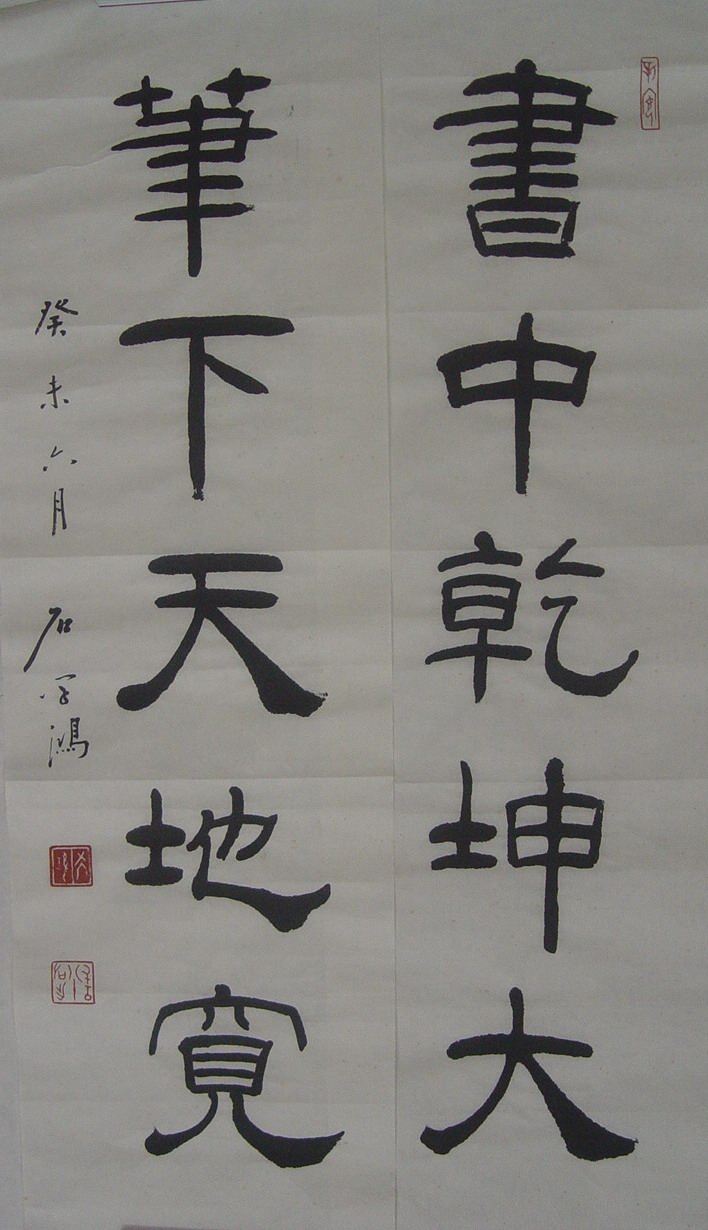 書中乾坤大
筆下天地寬
癸未六月 石学鴻